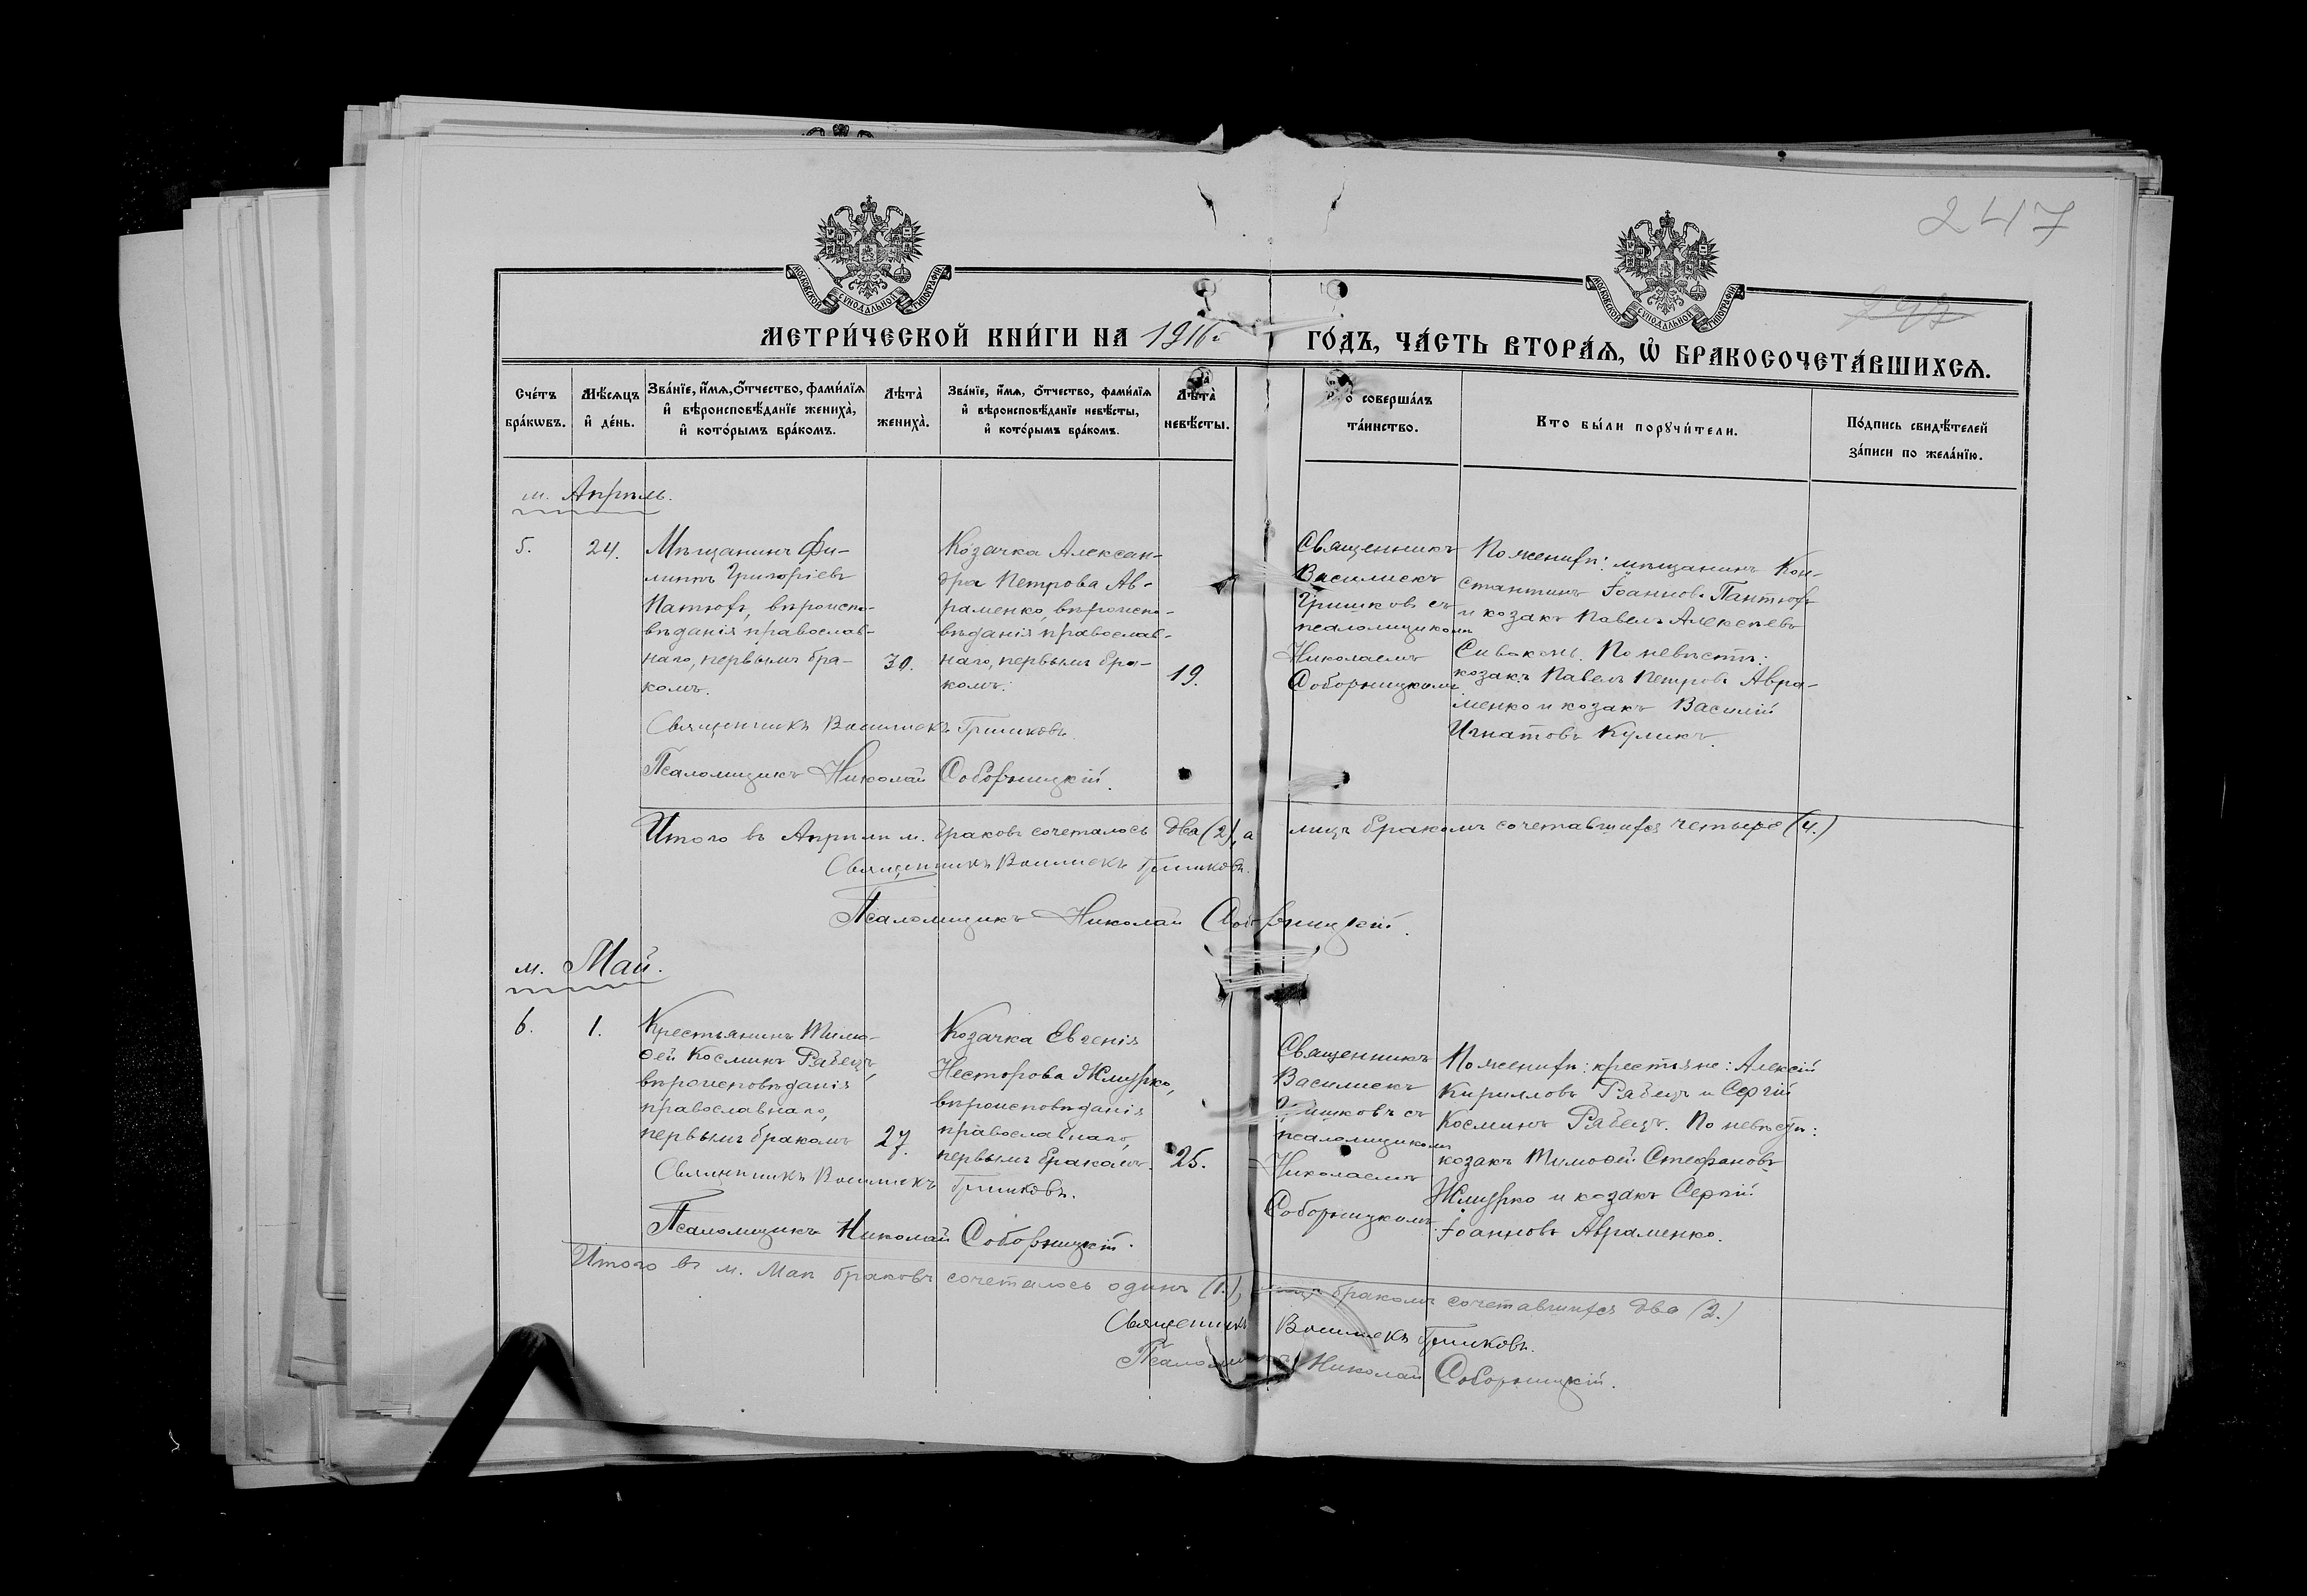 247
МОСКОВСКОЙ СѴНОДАЛЬНОЙ ТИПОГРАФІИ
МОСКОВСКОЙ СѴНОДАЛЬНОЙ ТИПОГРАФІИ
МЕТРИ́ЧЕСКОЙ КНИ́ГИ НА 1916 г. ГО́ДЪ, ЧА́СТЬ ВТОРА́Ѧ, Ѡ҆ БРАКОСОЧЕТА́ВШИХСѦ.
Сче́тъ
бра́кѡвъ.
Мѣ́сѧцъ
и҆ де́нь.
Зва́нїе, и҆́мѧ, ѻ҆́тчество, фами́лїѧ
и҆ вѣроисповѣ́данїе жениха̀,
и҆ кото́рымъ бра́комъ.
Лѣта̀
жениха̀.
Зва́нїе, и҆́мѧ, ѻ҆́тчество, фами́лїѧ
и҆ вѣроисповѣ́данїе невѣ́сты,
и҆ кото́рымъ бра́комъ.
Лѣта̀
невѣ́сты.
совершáлъ
та́инство.
Кто бы́ли порꙋчи́тели.
По́дпись свидѣ́телей
за́писи по жела́нїю.
м. Апрѣль.
5.
24.
Мѣщанинъ Фи-
липпъ Григоріевъ
Патюхъ, вѣроиспо-
вѣданія православ-
наго, первымъ бра-
комъ.
30.
Козачка Алексан-
дра Петрова Ав-
раменко, вѣроиспо-
вѣданія православ-
наго, первымъ бра-
комъ.
19.
Священникъ
Василискъ
Гришковъ съ
псаломщикомъ
Николаемъ
Соборницкимъ.
По женихѣ: мѣщанинъ Кон-
стантинъ Іоанновъ Пантюхъ
и козакъ Павелъ Алексѣевъ
Сивоконь. По невѣстѣ:
козакъ Павелъ Петровъ Авра-
менко и козакъ Василій
Игнатовъ Куликъ.
Священникъ Василискъ Гришковъ.
Псаломщикъ Николай Соборницкій.
Итого въ Апрѣлѣ м. браковъ сочеталось два (2), а лицъ бракомъ сочетавшихся четыре (4.)
Священникъ Василискъ Гришковъ.
Псаломщикъ Николай Соборницкій.
м. Май.
6.
1.
Крестьянинъ Тимо-
ѳей Косминъ Рябецъ,
вѣроисповѣданія
православнаго,
первымъ бракомъ
27.
Козачка Евгенія
Несторова Жмурко,
вѣроисповѣданія
православнаго,
первымъ бракомъ.
25.
Священникъ
Василискъ
Гришковъ съ
псаломщикомъ
Николаемъ
Соборницкимъ.
По женихѣ: крестьяне: Алексій
Кирилловъ Рябецъ и Сергій
Косминъ Рябецъ. По невѣстѣ:
козакъ Тимоѳей Стефановъ
Жмурко и козакъ Сергій
Іоанновъ Авраменко.
Священникъ Василискъ Гришковъ.
Псаломщикъ Николай Соборницкій.
Итого въ м. Маѣ браковъ сочеталось одинъ (1.), лицъ бракомъ сочетавшихся два (2.)
Священникъ Василискъ Гришковъ.
Псаломщикъ Николай Соборницкій.